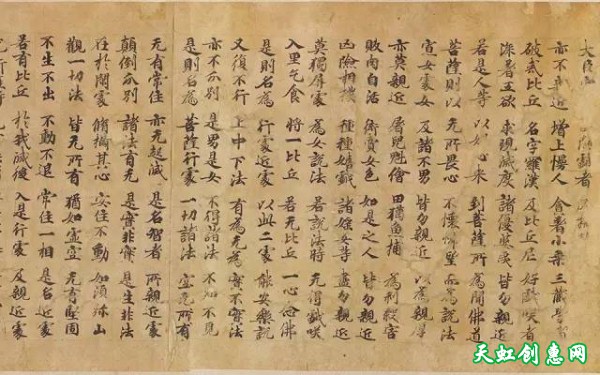 大臣
亦不親近 增上慢人 貪著小乘 三藏學者
破戒比丘 名字羅漢 及比丘尼 好戲咲者
深著五欲 求現滅度 諸優婆夷 皆勿親近
若是人等 以好心來 到菩薩所 為聞佛道
菩薩則以 无所畏心 不懷悕望 而為說法
寡女處女 及諸不男 皆勿親近 以為親厚
亦莫親近 屠兒魁膾 田獵魚捕 為利殺害
販肉自活 衒賣女色 如是之人 皆勿親近
凶險相撲 種種嬉戲 諸婬女等 盡勿親近
莫獨屏處 為女說法 若說法時 无得戲咲
入里乞食 將一比丘 若无比丘 一心念佛
是則名為 行處近處 以此二處 能安樂說
又復不行 上中下法 有為无為 實不實法
亦不分別 是男是女 不得諸法 不知不見
是則名為 菩薩行處 一切諸法 空无所有
无有常住 亦无起滅 是名智者 所親近處
顛倒分別 諸法有无 是實非實 是生非生
在於閑處 脩攝其心 安住不動 如須弥山
觀一切法 皆无所有 猶如虛空 无有堅固
不生不出 不動不退 常住一相 是名近處
若有比丘 於我滅後 入是行處 及親近處
天虹创惠网